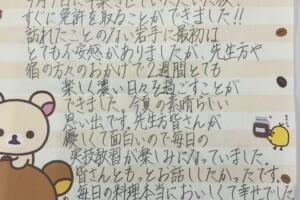 すぐに免許を取ることができました!!
訪れたことのない岩手に最初は
とても不安感がありましたが、先生方や
宿の方々のおかげで2週間とても
楽しく濃い日々を過ごすことが
できました。今夏の素晴らしい
思い出です。先生方皆さんが
優しくて面白いので毎日の
実技教習が楽しみになっていました。
皆さんともっとお話ししたかったです。
毎日の料理本当においしくて幸せでした